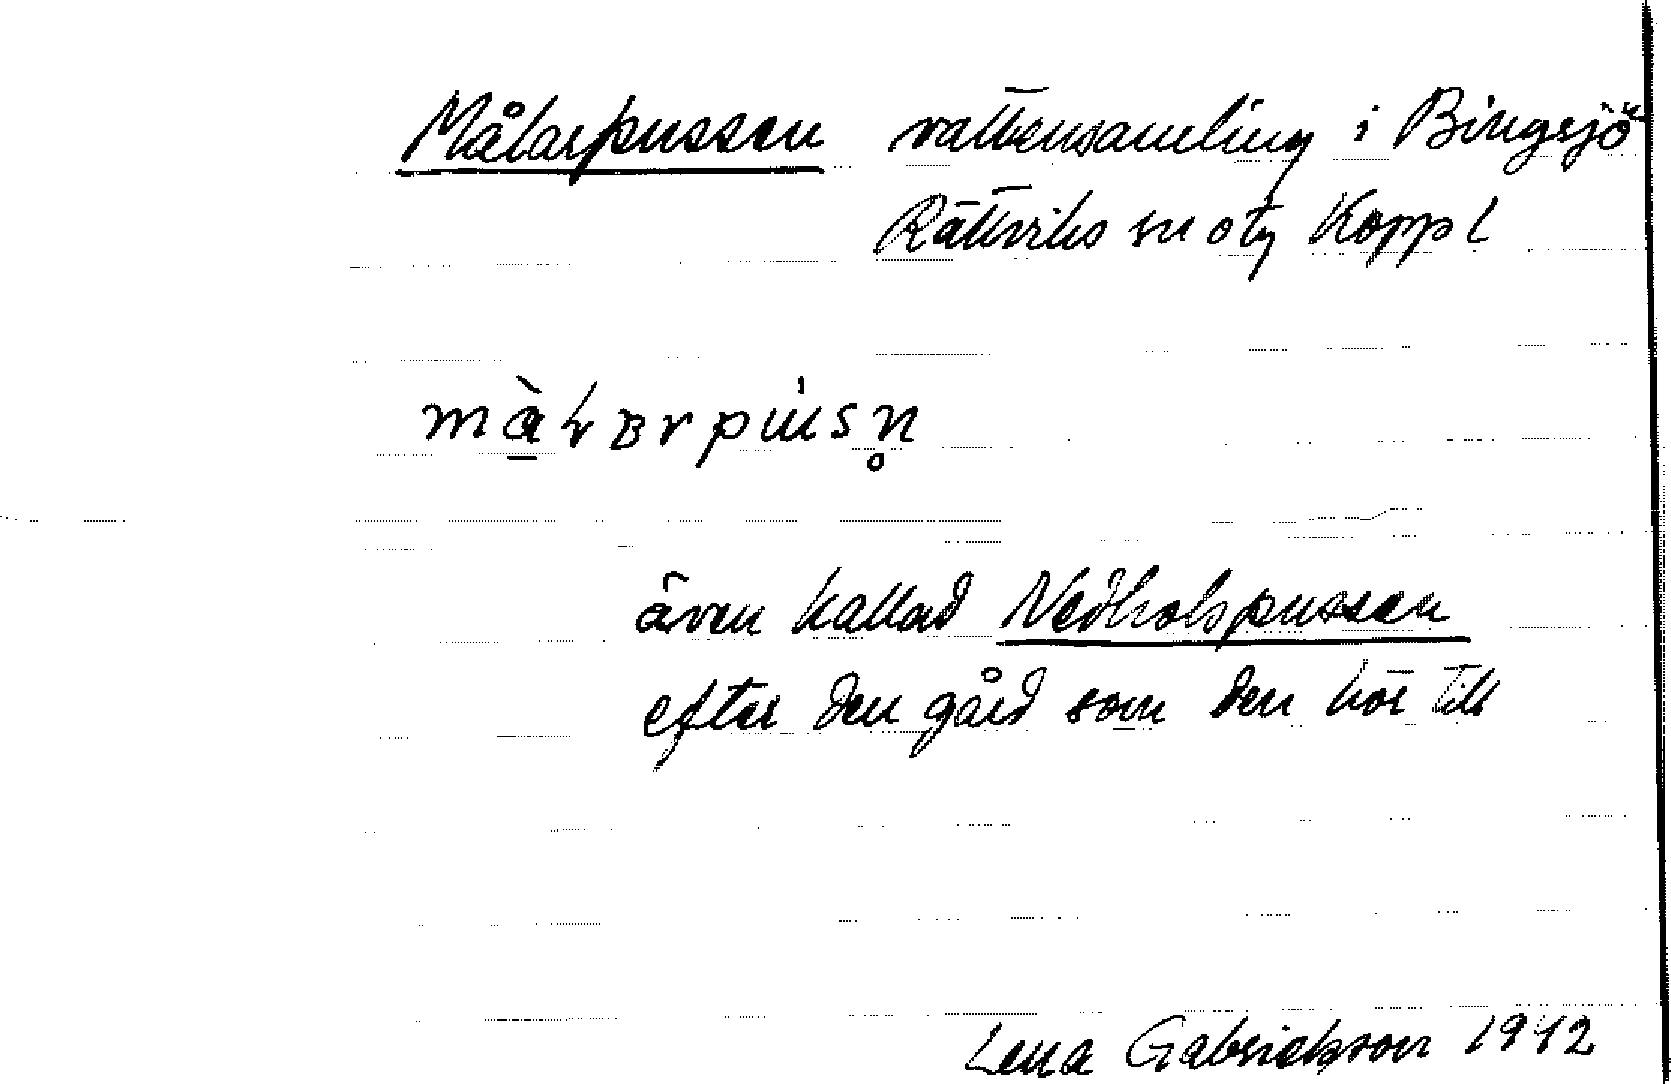 Målarpussen vattensamling i Bingsjö
Rättviks sn o tg Koppl
även kallad Nedholspussen
efter den gård som den hör till
Lena Gabrielsson 1942